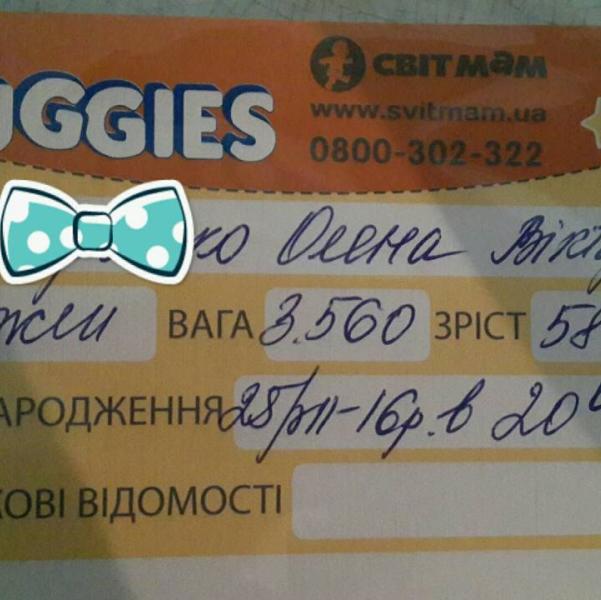 UGGIES
СВІТ МАМ
www.svitmam.ua
0800-302-322
ко Олена Вікт
ВАГА 3.560 ЗРІСТ 58
АРОДЖЕННЯ 25/VII-16р. в 20
КОВІ ВІДОМОСТІ